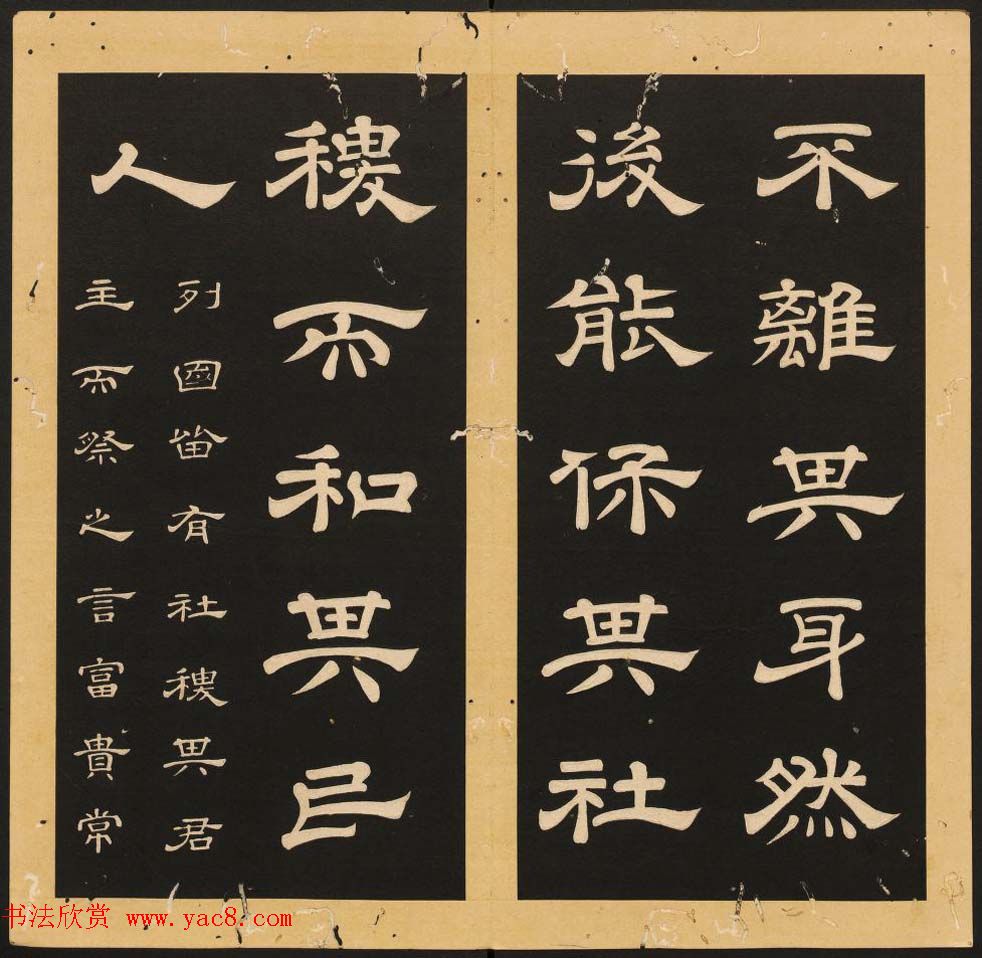 不離其身然
後能保其社
稷而和其民
人
列國皆有社稷其君
主而祭之言富貴常
书法欣赏 www.yac8.com